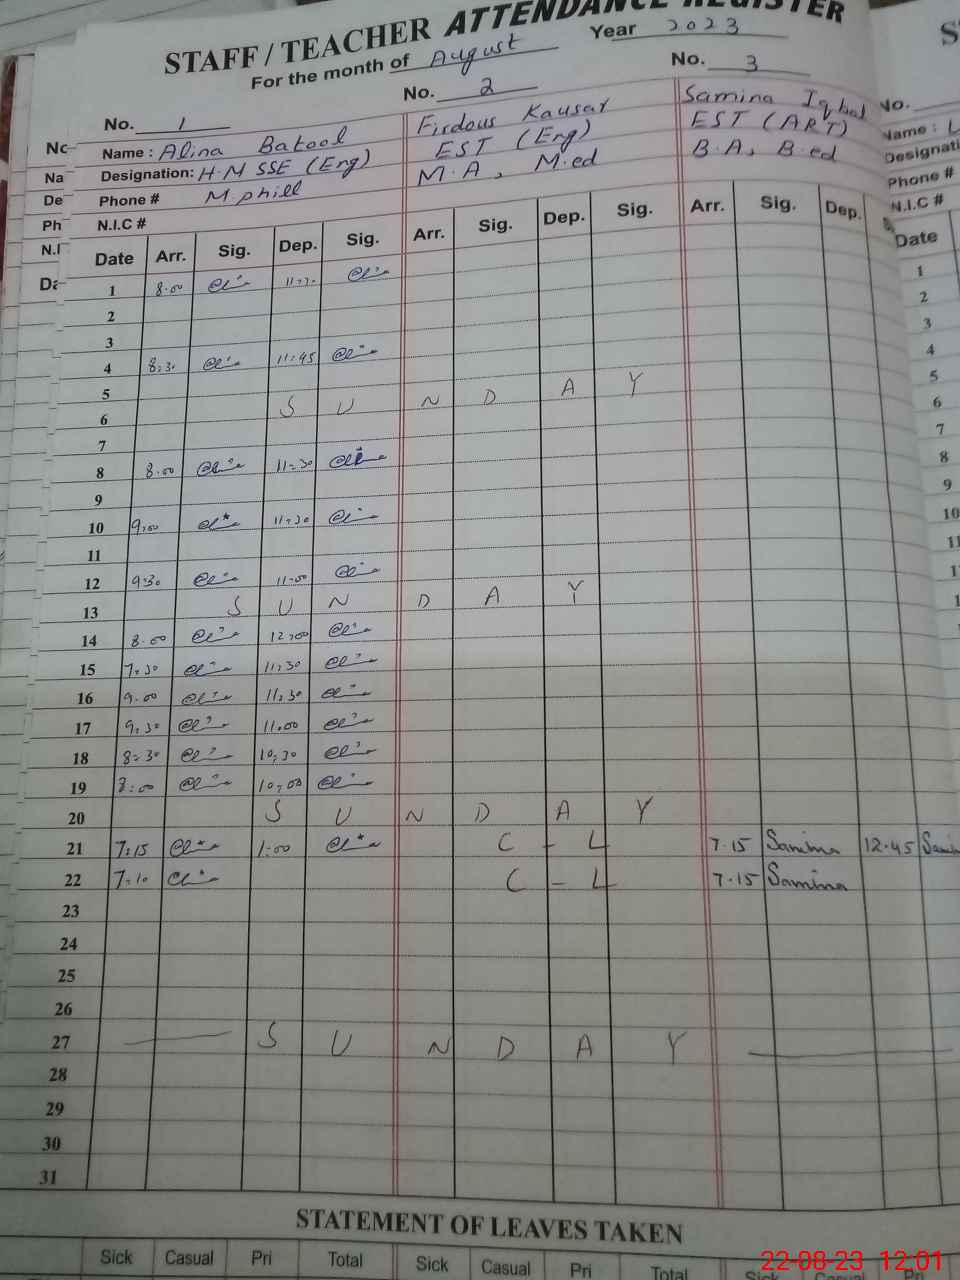 STAFF / TEACHER ATTENDANCE REGISTER
For the month of August Year 2023
No. 1 No. 2 No. 3
Name : Alina Batool Firdous Kausar Samina Iqbal
Designation: H.M SSE (Eng) EST (Eng) EST (ART)
Phone # M.phill M.A, M.ed B.A, B.ed
N.I.C #
Date Arr. Sig. Dep. Sig. Arr. Sig. Dep. Sig. Arr. Sig. Dep.
1 8.00
2
3
4 8:30 11:45
5
6 S U N D A Y
7
8 8.00 11:30
9
10 9:00 11:30
11
12 9:30 11:00
13 S U N D A Y
14 8.00 12:00
15 7:30 11:30
16 9.00 11:30
17 9:30 11.00
18 8:30 10:30
19 8:00 10:00
20 S U N D A Y
21 7:15 1:00 C - L 7.15 Samina 12.45
22 7:10 C - L 7.15 Samina
23
24
25
26
27 S U N D A Y
28
29
30
31
STATEMENT OF LEAVES TAKEN
Sick Casual Pri Total Sick Casual Pri Total Sick Casual Pri
No.
Name :
Phone #
N.I.C #
Date
1
2
3
4
5
6
7
8
9
10
11
22-08-23 12:01